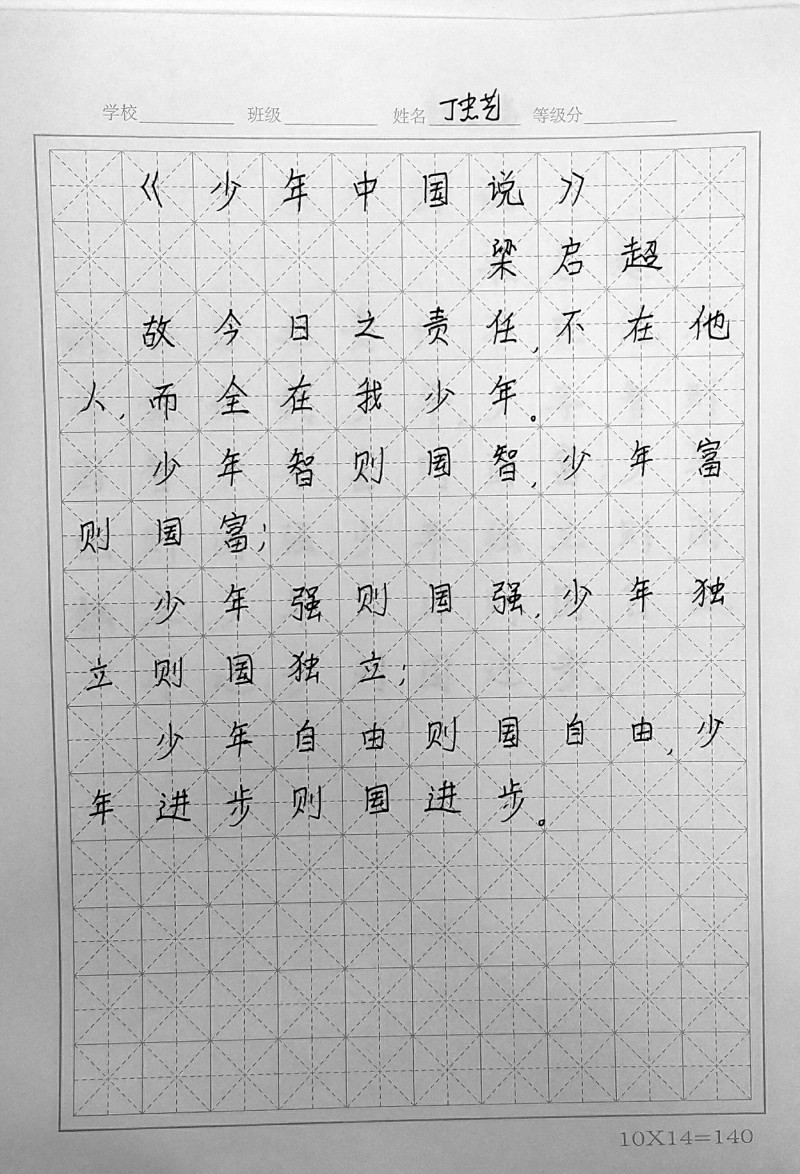 学校 班级 姓名 丁忠艺 等级分
《少年中国说》
梁启超
故今日之责任,不在他
人,而全在我少年。
少年智则国智,少年富
则国富;
少年强则国强,少年独
立则国独立;
少年自由则国自由,少
年进步则国进步。
10X14=140